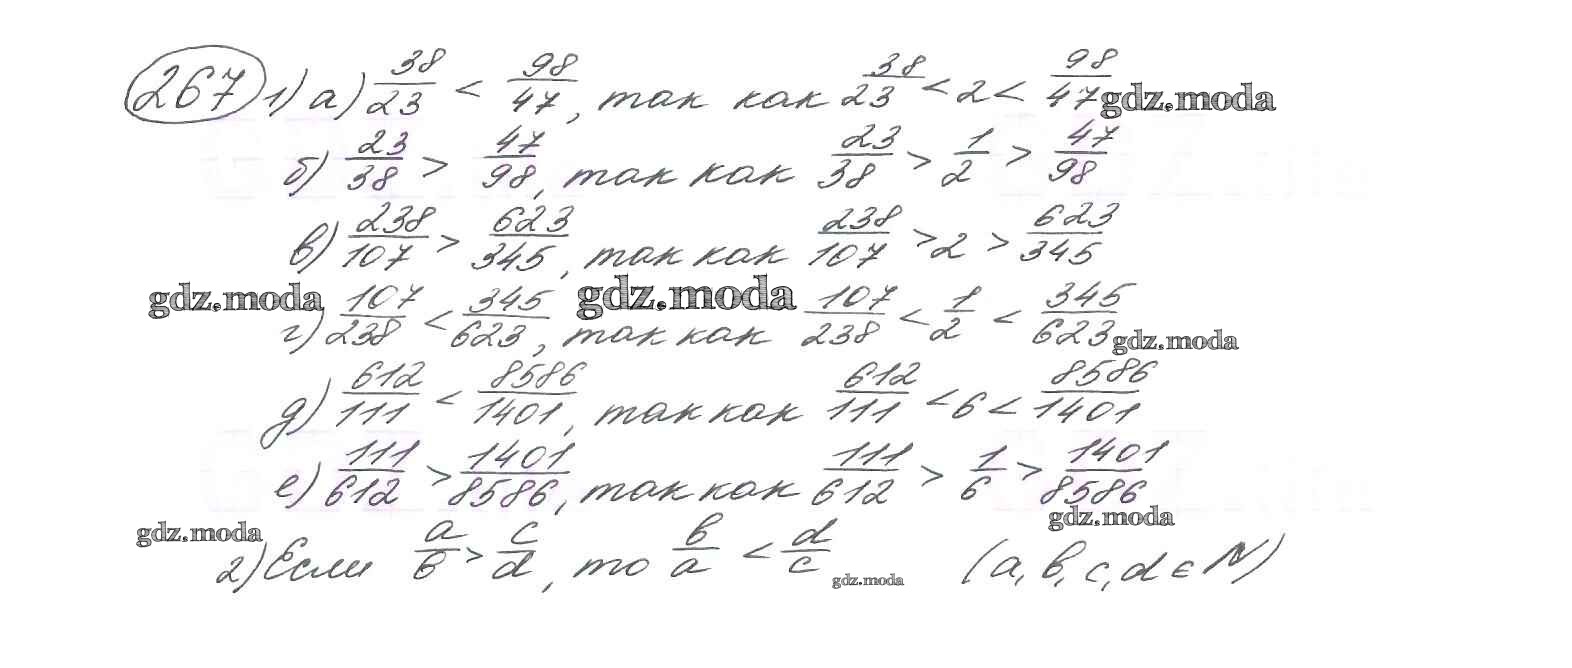 267 1) а) 38/23 < 98/47, так как 38/23 < 2 < 98/47 gdz.moda
б) 23/38 > 47/98, так как 23/38 > 1/2 > 47/98
в) 238/107 > 623/345, так как 238/107 > 2 > 623/345
gdz.moda gdz.moda
г) 107/238 < 345/623, так как 107/238 < 1/2 < 345/623 gdz.moda
д) 612/111 < 8586/1401, так как 612/111 < 6 < 8586/1401
е) 111/612 > 1401/8586, так как 111/612 > 1/6 > 1401/8586
gdz.moda gdz.moda
2) Если a/b > c/d, то b/a < d/c (a, b, c, d ∈ N)
gdz.moda